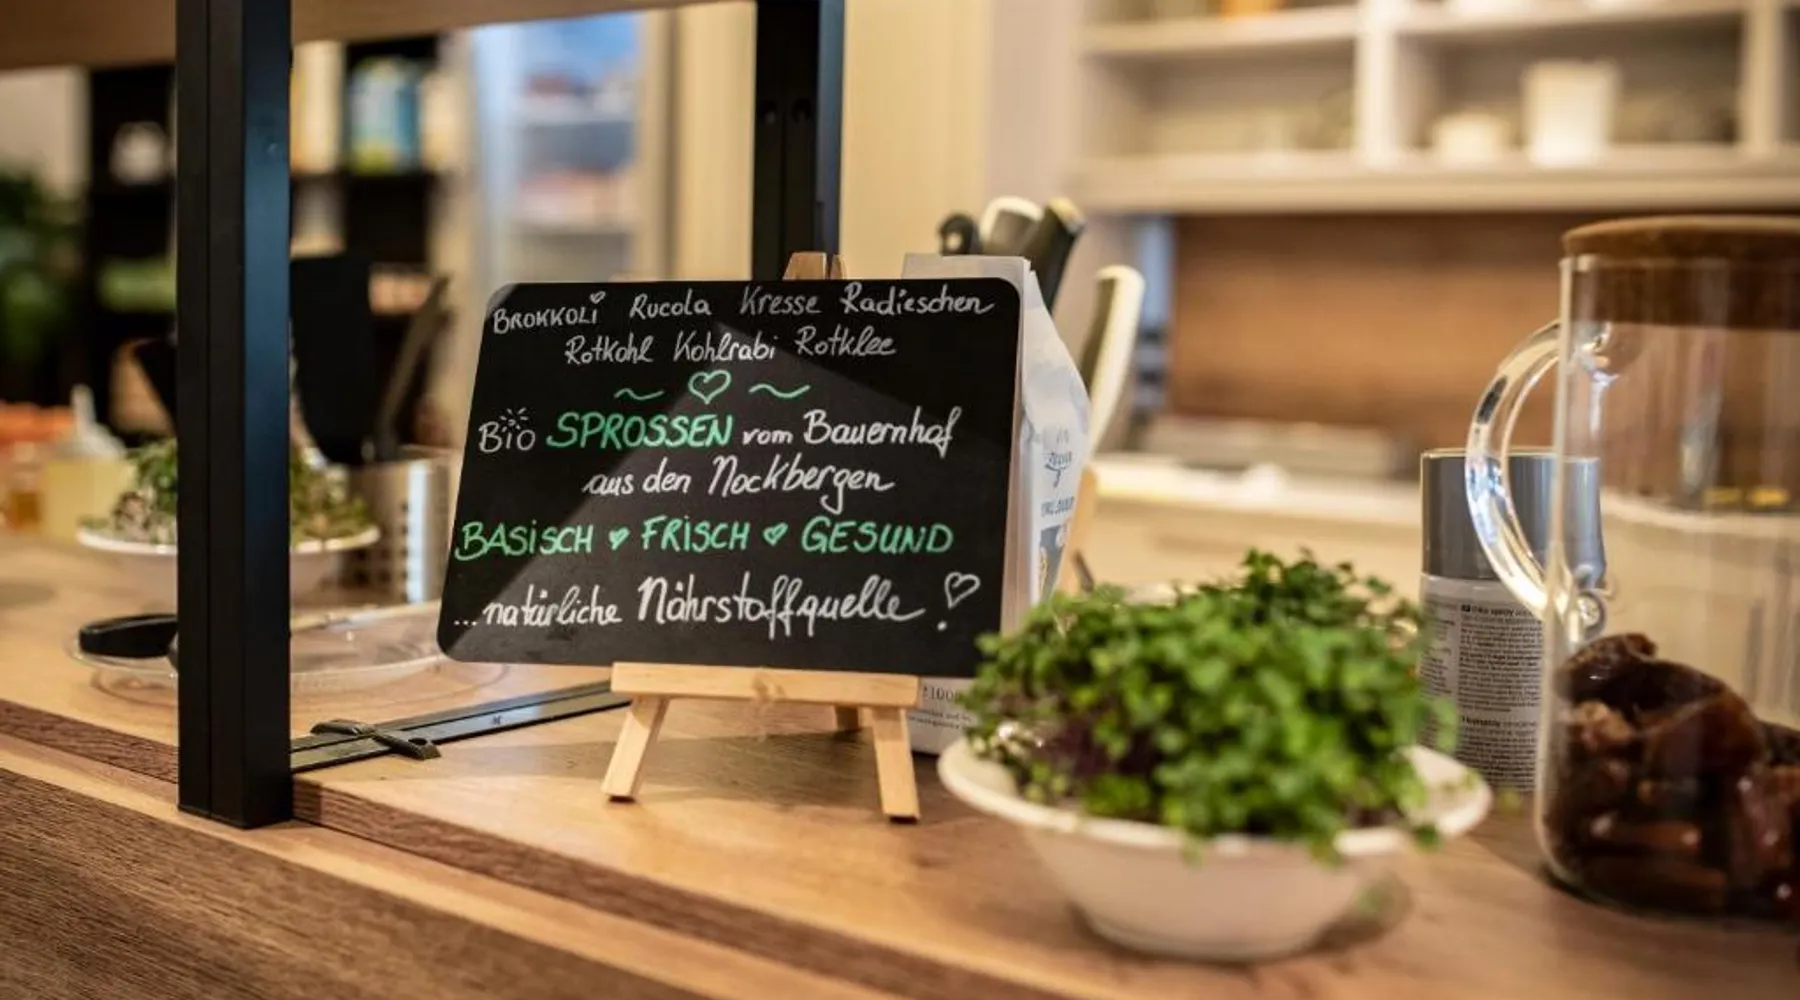 BROKKOLi Rucola Kresse Radieschen
Rotkohl Kohlrabi Rotklee
Bio SPROSSEN vom Bauernhof
aus den Nockbergen
BASiSCH FRiSCH GESUND
...natürliche Nährstoffquelle!